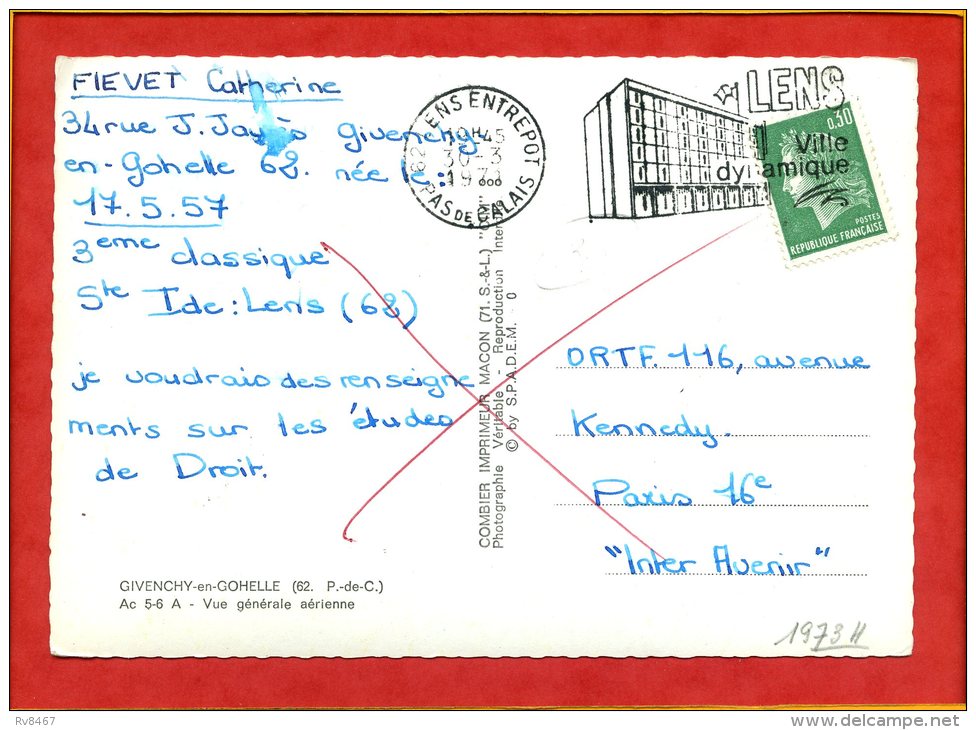 FIEVET Catherine
34 rue J. Jaurès Givenchy-
en-Gohelle 62. née le :
17.5.57
3eme classique
Ste Ide : Lens (62)
je voudrais des renseigne
ments sur les études
de Droit.
GIVENCHY-en-GOHELLE (62. P.-de-C.)
Ac 5-6 A - Vue générale aérienne
62 LENS ENTREPOT
19H45
30-3
1973
PAS DE CALAIS
LENS
Ville
dynamique
0,30
POSTES
REPUBLIQUE FRANÇAISE
COMBIER IMPRIMEUR MACON (71. S.-&-L.)
Photographie Véritable - Reproduction
© by S.P.A.D.E.M. 0
ORTF. 116, avenue
Kennedy.
Paris 16e
"Inter Avenir"
1973
Rv8467
www.delcampe.net